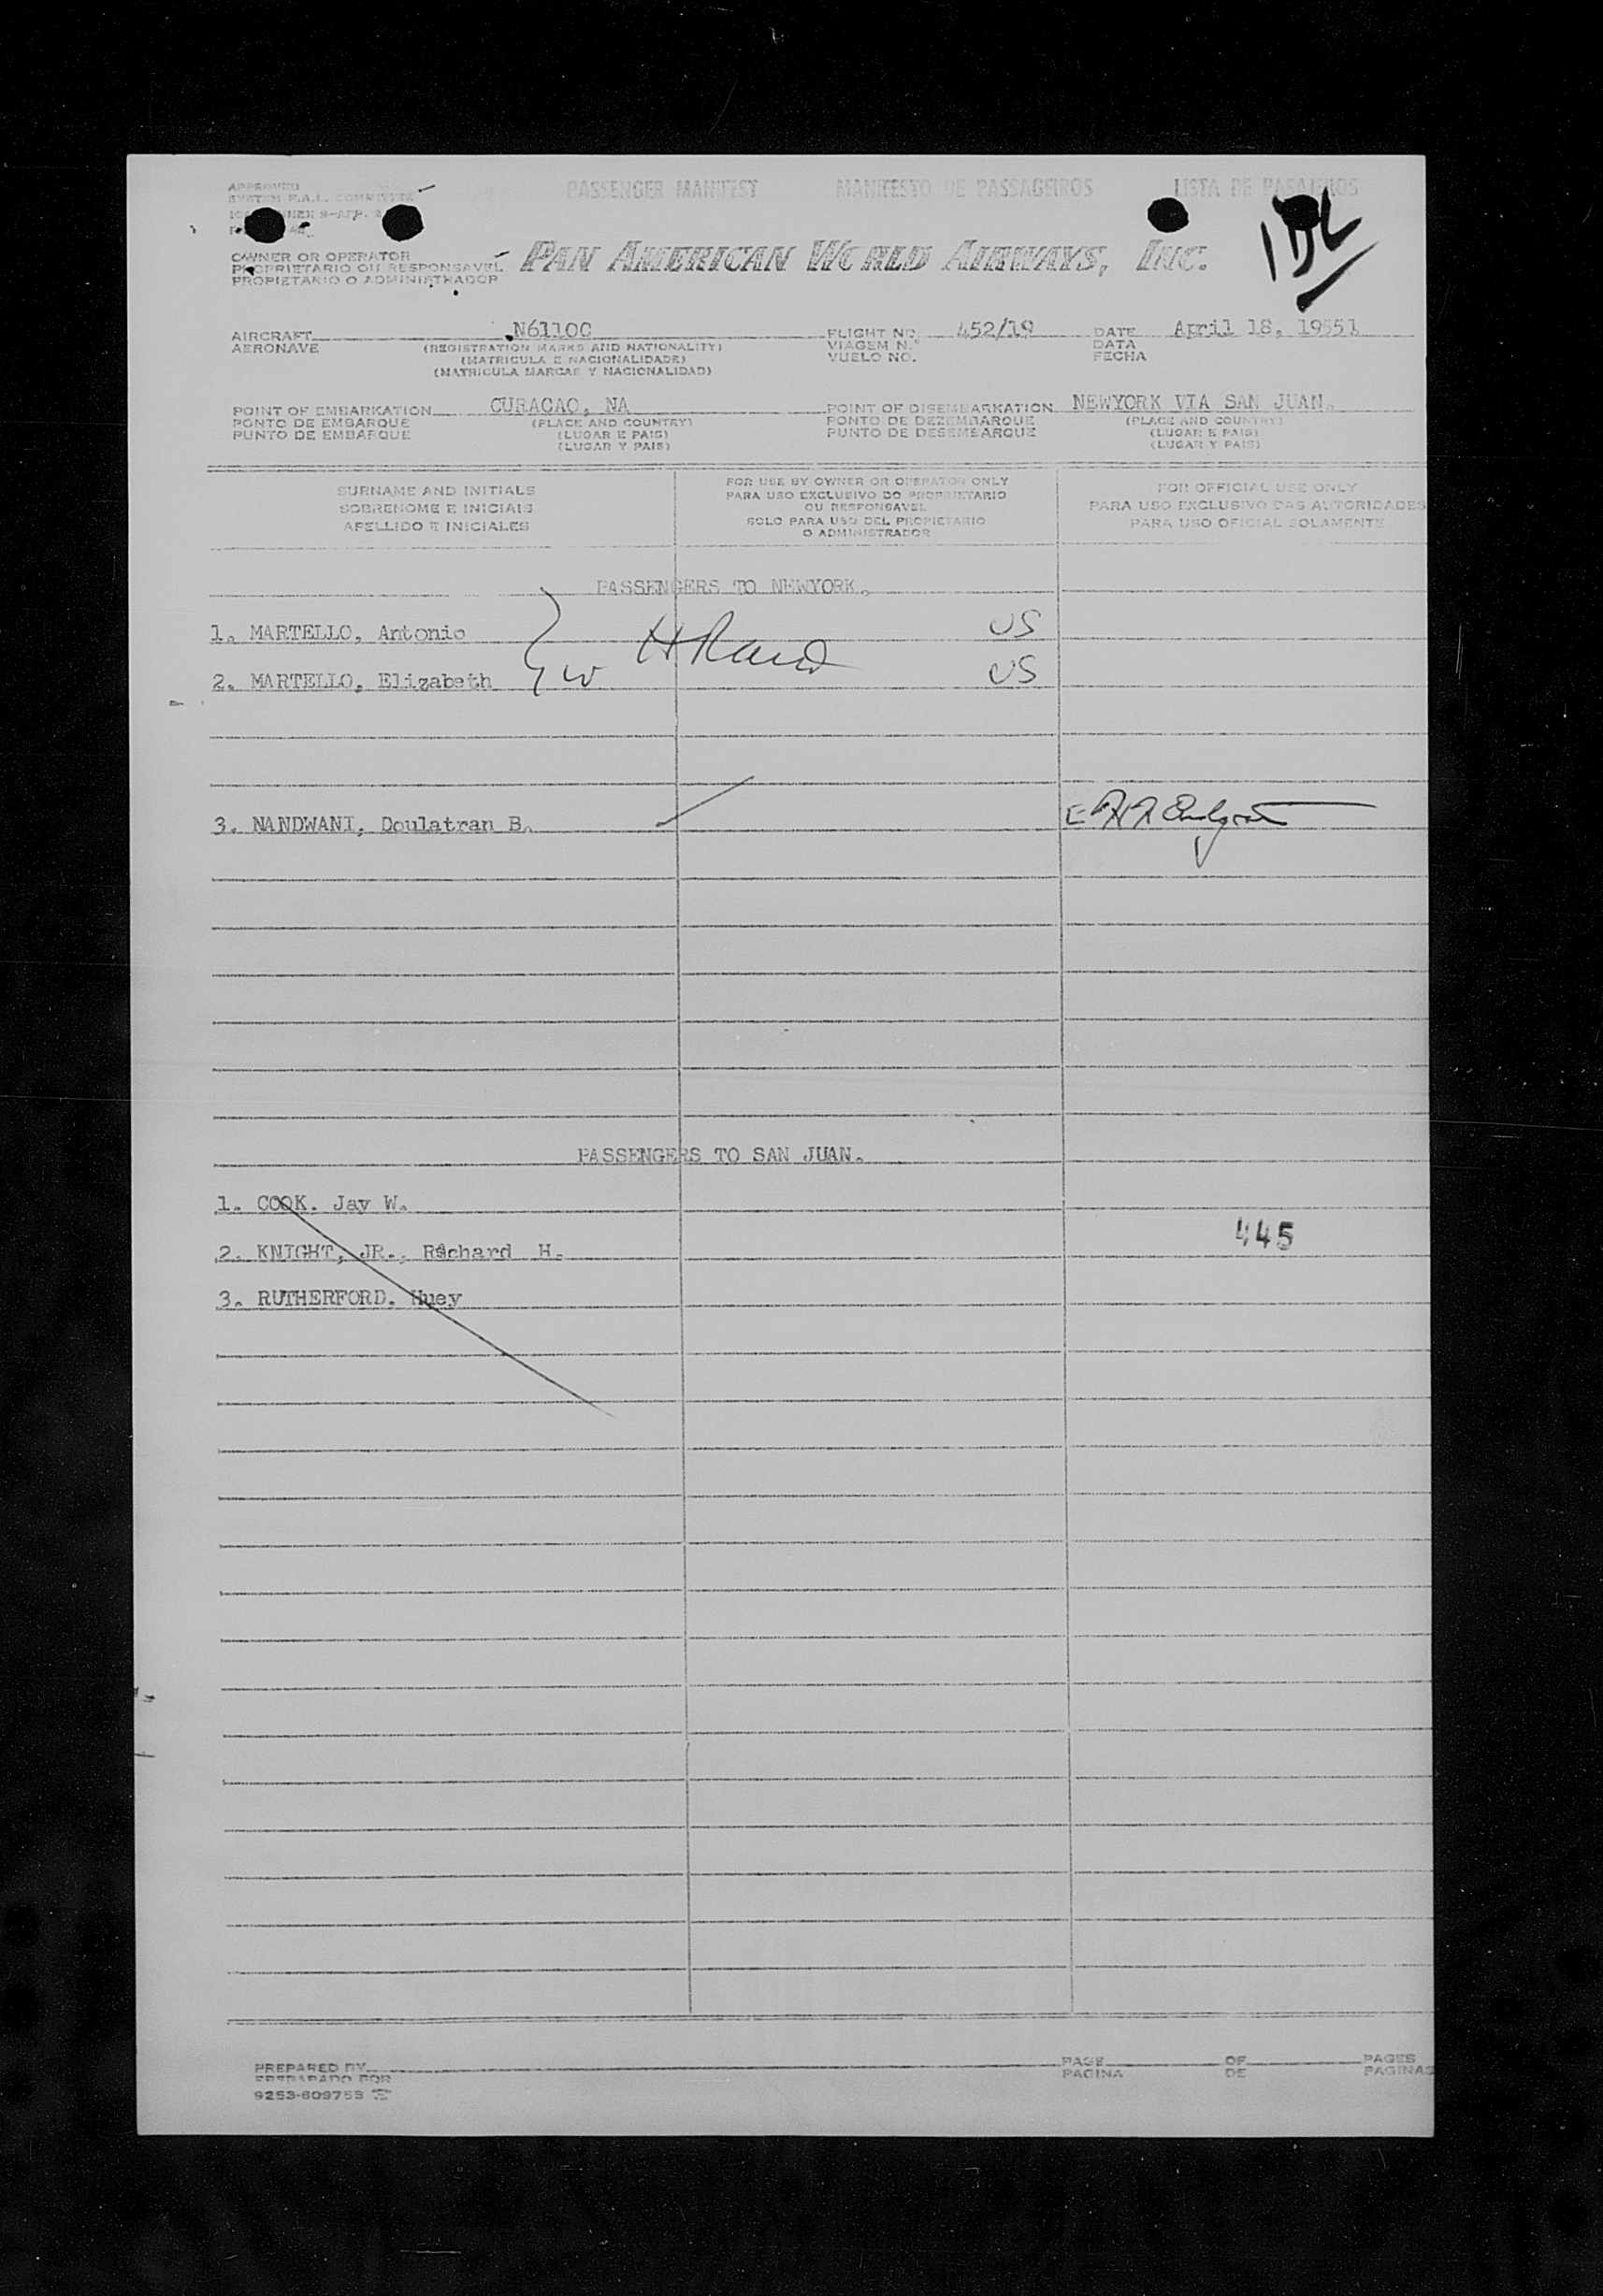 APPROVED
SYSTEM F.A.L. COMMITTEE
PASSENGER MANIFEST MANIFESTO DE PASSAGEIROS LISTA DE PASAJEROS
OWNER OR OPERATOR
PROPRIETARIO OU RESPONSAVEL
PROPIETARIO O ADMINISTRADOR
PAN AMERICAN WORLD AIRWAYS, INC.
AIRCRAFT N6110C FLIGHT NO. 452/19 DATE April 18, 19551
AERONAVE (REGISTRATION MARKS AND NATIONALITY) VIAGEM N.º DATA
(MATRICULA E NACIONALIDADE) VUELO NO. FECHA
(MATRICULA MARCAS Y NACIONALIDAD)
POINT OF EMBARKATION CURACAO, NA POINT OF DISEMBARKATION NEWYORK VIA SAN JUAN.
PONTO DE EMBARQUE (PLACE AND COUNTRY) PONTO DE DEZEMBARQUE (PLACE AND COUNTRY)
PUNTO DE EMBARQUE (LUGAR E PAIS) PUNTO DE DESEMBARQUE (LUGAR E PAIS)
(LUGAR Y PAIS) (LUGAR Y PAIS)
SURNAME AND INITIALS
SOBRENOME E INICIAIS
APELLIDO E INICIALES
FOR USE BY OWNER OR OPERATOR ONLY
PARA USO EXCLUSIVO DO PROPRIETARIO
OU RESPONSAVEL
SOLO PARA USO DEL PROPIETARIO
O ADMINISTRADOR
FOR OFFICIAL USE ONLY
PARA USO EXCLUSIVO DAS AUTORIDADES
PARA USO OFICIAL SOLAMENTE
PASSENGERS TO NEWYORK.
1. MARTELLO, Antonio US
2. MARTELLO, Elizabeth W US
3. NANDWANI, Doulatran B.
PASSENGERS TO SAN JUAN.
1. COOK. Jay W.
2. KNIGHT, JR., Richard H. 445
3. RUTHERFORD. Huey
PREPARED BY PAGE OF PAGES
PREPARADO POR PAGINA DE PAGINAS
9253-609753